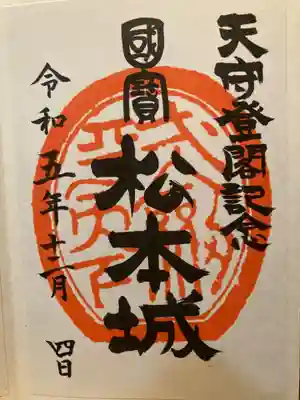 天守登閣記念
國寶
松本城
令和五年十二月
四日